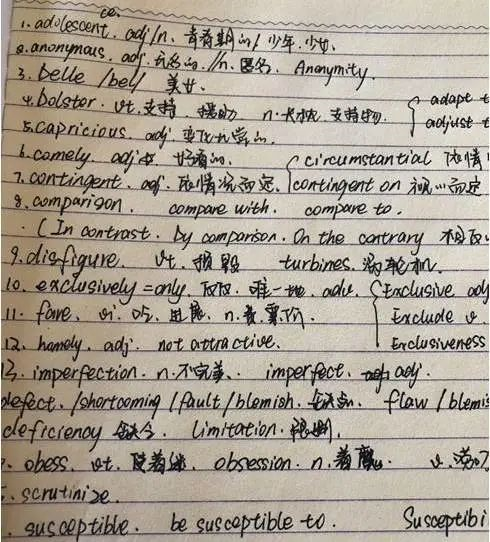 ce.
1. adolescent. adj/n. 青春期的/少年.少女.
2. anonymous. adj. 无名的. //n. 匿名. Anonymity.
3. belle /bel/ 美女.
4. bolster. vt. 支持 援助 n. 长枕. 支持物. { adapt t
5. capricious. adj. 变化无常的. adjust t
6. comely. adj. 好看的. { circumstantial 依情
7. contingent. adj. 依情况而定. contingent on 视...而定
8. comparison. compare with. compare to.
. (In contrast. by comparison. On the contrary 相反
9. disfigure. vt. 损毁 turbines. 涡轮机.
10. exclusively = only. 仅仅. 唯一地. adv. { Exclusive adj
11. fare. vi. 吃. 进展. n. 票价. Exclude v.
12. homely. adj. not attractive. Exclusiveness
13. imperfection. n. 不完美. imperfect. adj.
defect. /shortcoming /fault /blemish. 缺点. flaw /blemis
deficiency 缺乏. limitation.
. obess. vt. obsession. n. 着魔. v.
. scrutinize.
. susceptible. be susceptible to. Susceptibi